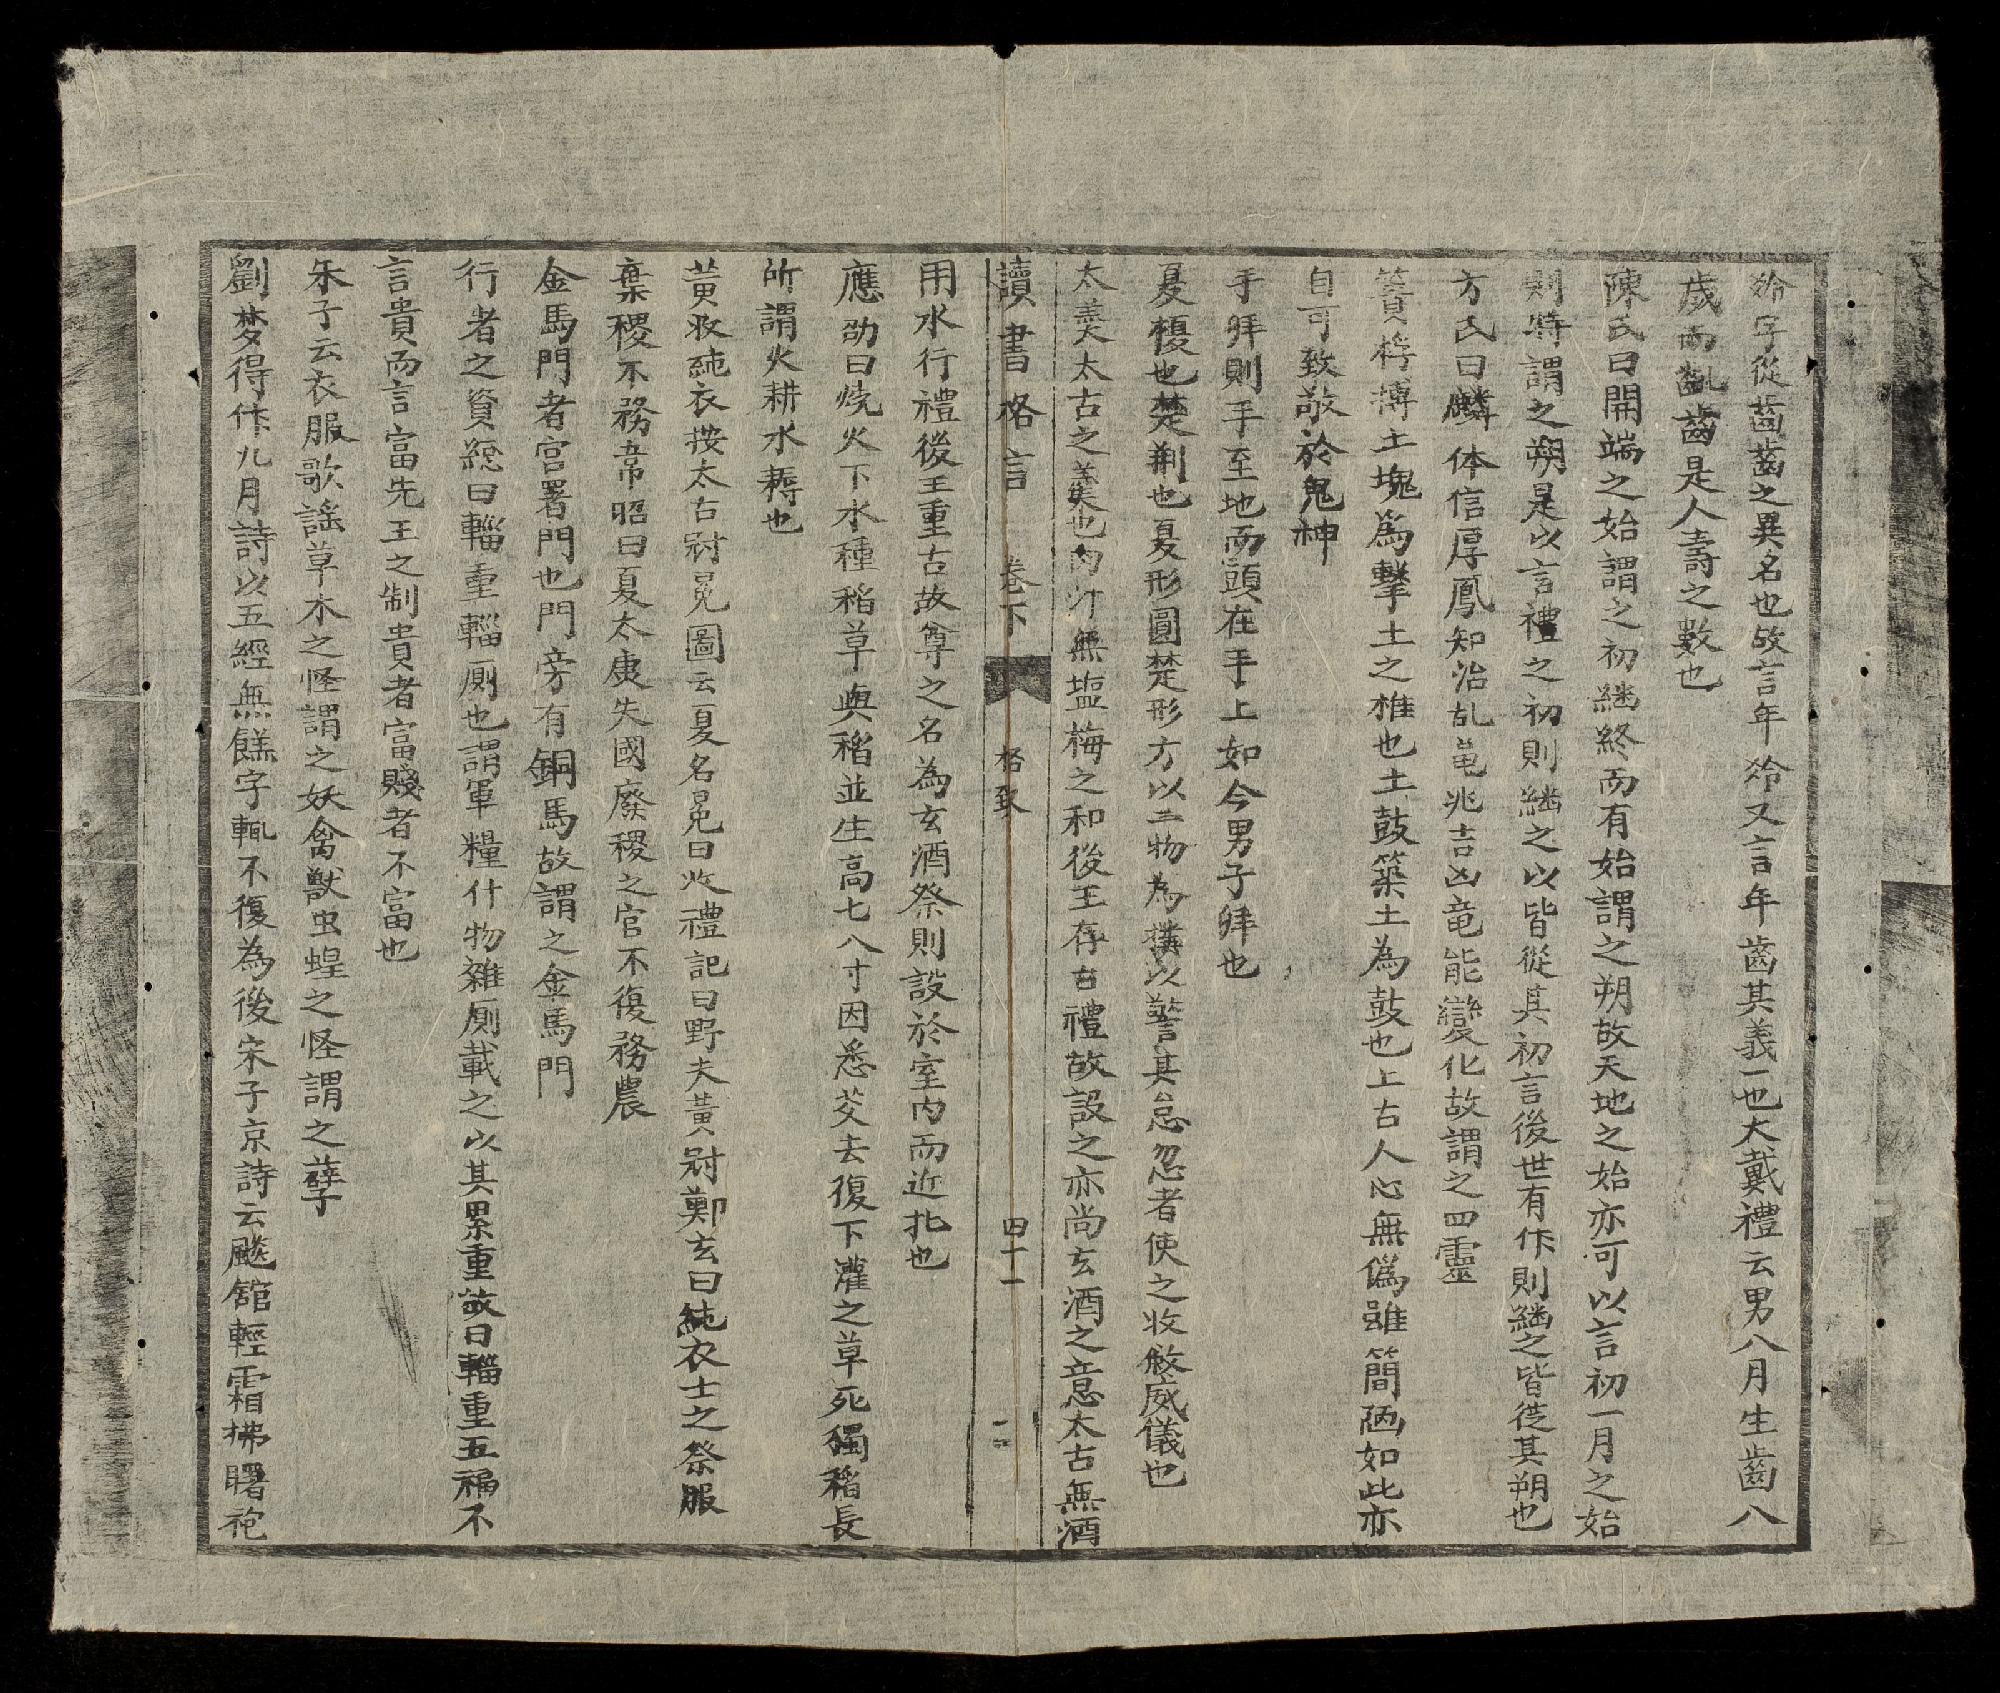 齡字從齒齒之異名也故言年齡又言年齒其義一也大戴禮云男八月生齒八
歲而齓齒是人壽之數也
陳氏曰開端之始謂之初繼終而有始謂之朔故天地之始亦可以言初一月之始
則特謂之朔是以言禮之初則繼之以皆從其初言後世有作則繼之皆從其朔也
方氏曰麟体信厚鳳知治乱黽兆吉凶竜能變化故謂之四靈
蕢桴摶土塊為擊土之椎也土鼓築土為鼓也上古人心無僞雖簡陋如此亦
自可致敬於鬼神
手拜則手至地而頭在手上如今男子拜也
夏榎也楚荆也夏形圓楚形方以二物為構以警其怠忽者使之收斂威儀也
太羹太古之羹也肉汁無塩梅之和後王存古禮故設之亦尚玄酒之意太古無酒
讀書格言 卷下 格致 四十一
用水行禮後王重古故尊之名為玄酒祭則設於室内而近北也
應劭曰燒火下水種稻草與稻並生高七八寸因悉芟去復下灌之草死獨稻長
所謂火耕水耨也
黄收純衣按太古冠冕圖云夏名冕曰收禮記曰野夫黄冠鄭玄曰純衣士之祭服
棄稷不務韋昭曰夏太康失國廢稷之官不復務農
金馬門者宫署門也門旁有銅馬故謂之金馬門
行者之資總曰輜重輜厠也謂軍糧什物雜厠載之以其累重故曰輜重五福不
言貴而言富先王之制貴者富賤者不富也
朱子云衣服歌謡草木之怪謂之妖禽獸虫蝗之怪謂之孽
劉梦得作九月詩以五經無餻字輒不復為後宋子京詩云飈舘輕霜拂曙袍